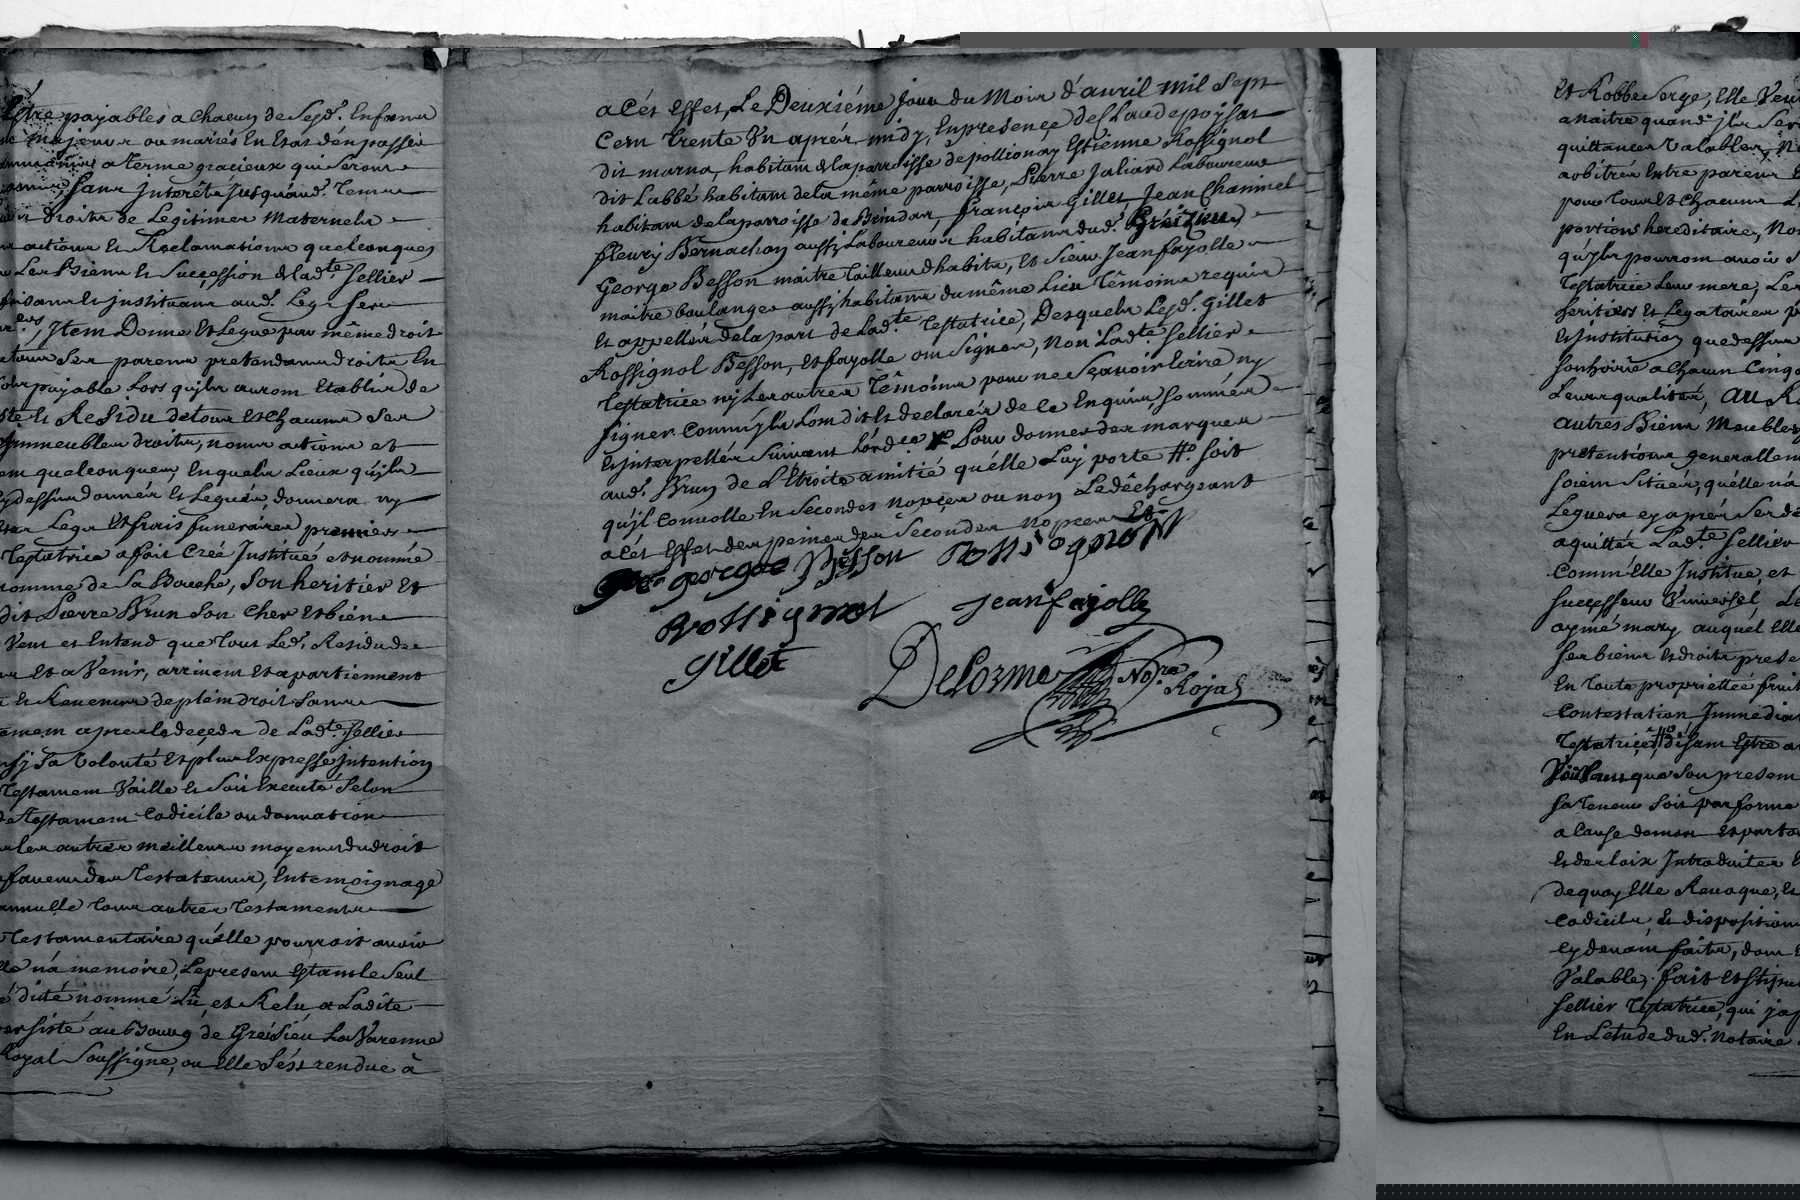 Estre payables a chacun de Sesd. Enfans
majeurs ou mariés En Estat d'En passer
a terme gracieux qui seront
sans Interêts jusquáud. Terme
droits de Légitimes Maternels
actions et Reclamations quelconques
Les Biens et Succession de lad.te Sellier
instituant aud. Legs ses
Item Donne Et Legue par même droit
ses parens pretendans droits En
payable Lors qu'ils auront Etablir de
Et Residu de tous Et Chacuns Ses
Immeubles droits, noms actions et
quelconques, En quels Lieux qu'ils
cy dessus donnés Et Legués, donnera ny
Legs Et frais funeraires premiers
Testatrice a fait Créé Institué et nommé
nomme de Sa Bouche, Son heritier Et
dit Pierre Brun Son Cher Et bien
Veut et Entend que tous Led. Residu de
Et a Venir, arrivent Et apartiennent
Et Revenus de plein droit Sans
apres le deçeds de Lad.te Sellier
Sa Volonté Et plus Expresse Intention
Testament Vaille Et Soit Executé Selon
de Testament Codicile ou donnation
les autres meilleurs moyens du droit
faveur des Testateurs, En temoignage
annulle tous autres Testaments
Testamentaire qu'elle pourroit avoir
n'a memoire, Le present Estant le Seul
dicté nommé Lû, et Relu, a Ladite
persisté au Bourg de Greisieu La Varenne
Royal Soussigné, ou Elle S'est rendue à
a Cét Effet, Le Deuxiéme Jour du Mois d'avril Mil Sept
Cent Trente Un aprés midy, En presence de Claude poysat
dit marna, habitant de la parroisse de pollionay Estienne Rossignol
dit Labbé habitant de la même parroisse, Pierre Juliard Laboureur
habitant de la parroisse de Brindas, françois Gillet, Jean Chaminel
fleury Bernachon aussy Laboureurs habitans dud. Greizieu,
George Besson maitre Tailleur d'habits, Et Sieur Jean fayolle
maitre boulanger aussy habitans du même Lieu Têmoins requis
Et appellés de la part de Lad.te Testatrice, Desquels Lesd. Gillet
Rossignol Besson, Et fayolle ont Signé, Non Lad.te Sellier
Testatrice ny Les autres Têmoins pour ne Sçavoir Ecrire ny
signer Comm'ils L'ont dit Et declaré de ce Enquis Sommés
Et interpellés Suivant L'ord.ce Pour donner des marques
aud. Brun de L'Etroite amitié qu'elle Luy porte soit
qu'il Convolle En Secondes Nopçes ou non Le déchargeant
a Cét Effet des peines des Secondes Nopces
george Besson Rossignol
Rossignol Jean fayolle
Gillet
Delorme No.re Royal
Et Robbe Serge, Elle Veut
a Naitre quand il Ser
quittances Valables, N
arbitrés Entre parens E
pour Tous Et Chacuns L
portions hereditaire, No
qu'ils pourront avoir S
Testatrice Leur mere, Le
heritiers Et Legataires p
Et institution que dessus
hoirie a Chacun Cinq
Leurs qualités, Au R
autres Biens Meubles
pretentions generallem
soient Situés, qu'elle n'a
Leguera cy aprés Ses de
aquittés Lad.te Sellier
Comm'Elle Institue, et
successeur Universel, Le
aymé mary auquel Elle
ses biens Et droits prese
En Toute proprieteé frui
Contestation Immediat
Testatrice disant Estre a
que Son present
sa Teneur Soit par forme
a Cause de mort Et par to
Et des loix Introduites E
de quoy Elle Revoque, Et
Codicils, Et disposition
cy devant faits, dont E
Valable, fait Et Stipu
Sellier Testatrice, qui j'a
En L'etude dud. Notaire